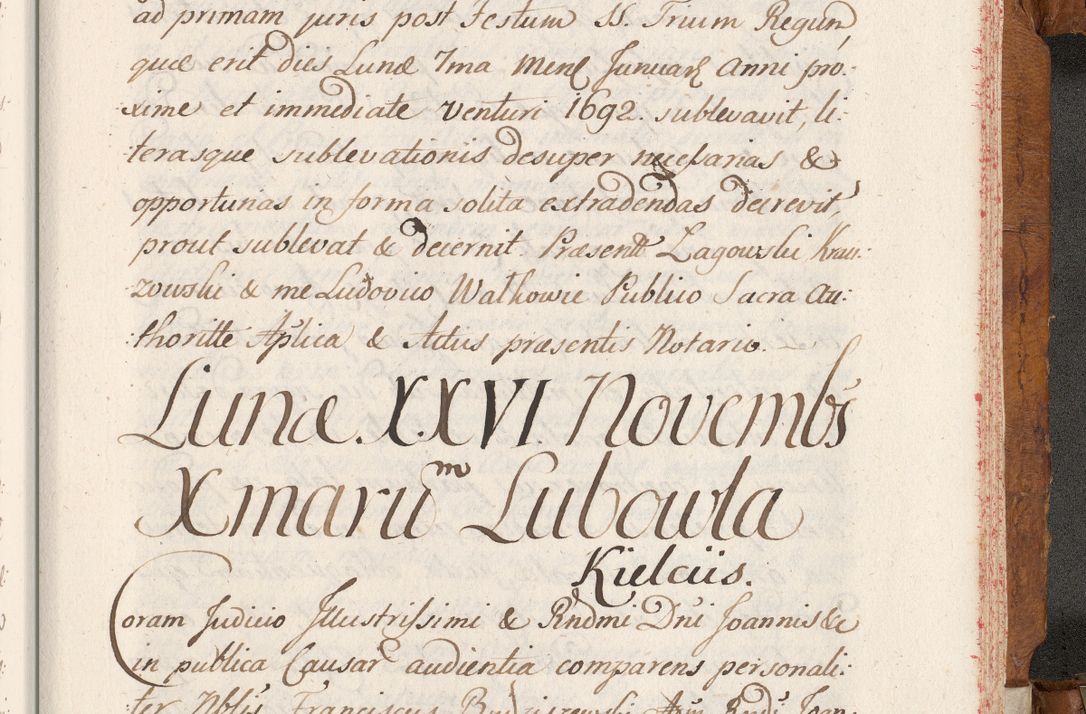 ad primam juris post Festum SS. Trium Regum,
quæ erit dies Lunæ 7ma Mens Januarij Anni pro:
xime et immediate venturi 1692. sublevavit, li:
terasque sublevationis desuper necessarias &
opportunas in forma solita extradendas decrevit,
prout sublevat & decernit Præsentt Łagowski Krau:
zowski & me Ludovico Walkowic Publico Sacra Au:
thoritte Aplica & Actus præsentis Notario.
Lunæ. XXVI. Novembs
Xmaru m Lubowla
Kielciis.
Coram Judicio Illustrissimi & Rndmi Dni Joannis &c
in publica Causar audientia comparens personali:
ter Nblis Franciscus